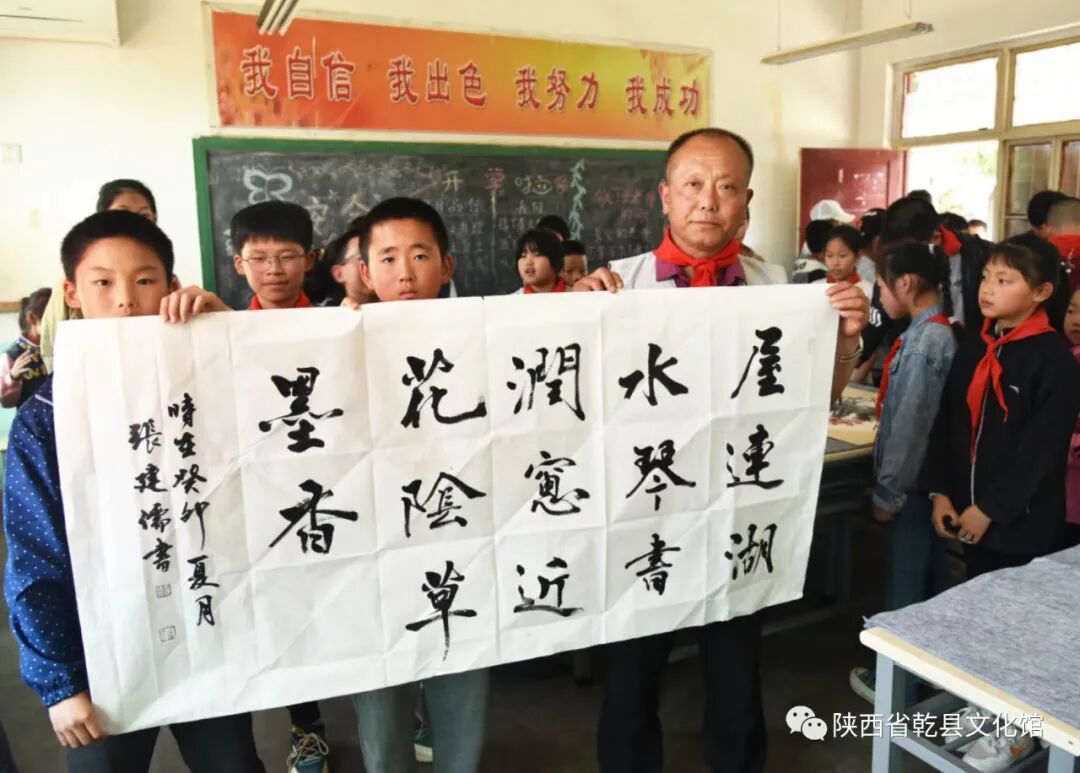 我自信 我出色 我努力 我成功
屋連湖
水琴書
潤窻近
花陰草
墨香
時在癸卯夏月
張建儒書
陕西省乾县文化馆